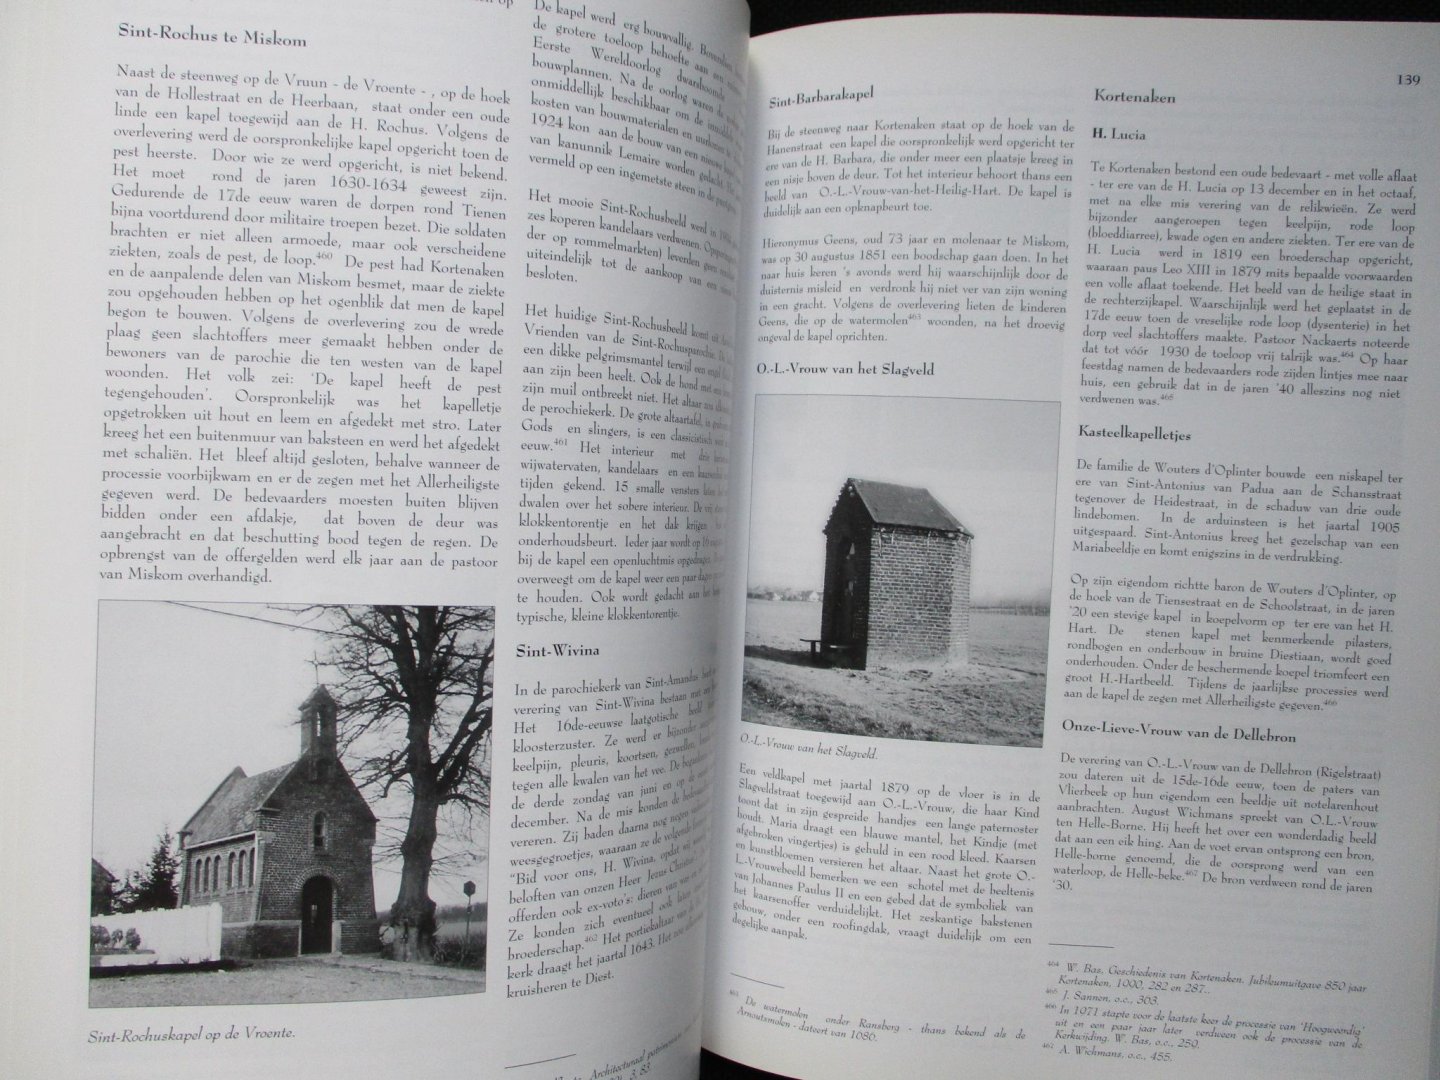 Sint-Rochus te Miskom
Naast de steenweg op de Vruun - de Vroente - , op de hoek
van de Hollestraat en de Heerbaan, staat onder een oude
linde een kapel toegewijd aan de H. Rochus. Volgens de
overlevering werd de oorspronkelijke kapel opgericht toen de
pest heerste. Door wie ze werd opgericht, is niet bekend.
Het moet rond de jaren 1630-1634 geweest zijn.
Gedurende de 17de eeuw waren de dorpen rond Tienen
bijna voortdurend door militaire troepen bezet. Die soldaten
brachten er niet alleen armoede, maar ook verscheidene
ziekten, zoals de pest, de loop.460 De pest had Kortenaken
en de aanpalende delen van Miskom besmet, maar de ziekte
zou opgehouden hebben op het ogenblik dat men de kapel
begon te bouwen. Volgens de overlevering zou de wrede
plaag geen slachtoffers meer gemaakt hebben onder de
bewoners van de parochie die ten westen van de kapel
woonden. Het volk zei: 'De kapel heeft de pest
tegengehouden'. Oorspronkelijk was het kapelletje
opgetrokken uit hout en leem en afgedekt met stro. Later
kreeg het een buitenmuur van baksteen en werd het afgedekt
met schaliën. Het bleef altijd gesloten, behalve wanneer de
processie voorbijkwam en er de zegen met het Allerheiligste
gegeven werd. De bedevaarders moesten buiten blijven
bidden onder een afdakje, dat boven de deur was
aangebracht en dat beschutting bood tegen de regen. De
opbrengst van de offergelden werd elk jaar aan de pastoor
van Miskom overhandigd.
Sint-Rochuskapel op de Vroente.
De kapel werd erg bouwvallig.
de grotere toeloop behoefte aan een
Eerste Wereldoorlog dwarsboomde
bouwplannen. Na de oorlog waren de
onmiddellijk beschikbaar om de
kosten van bouwmaterialen en
1924 kon aan de bouw van een nieuwe
van kanunnik Lemaire worden gedacht.
vermeld op een ingemetste steen in de
Het mooie Sint-Rochusbeeld werd in
zes koperen kandelaars verdwenen.
der op rommelmarkten) leverden geen
uiteindelijk tot de aankoop van een
besloten.
Het huidige Sint-Rochusbeeld komt uit
Vrienden van de Sint-Rochusparochie.
een dikke pelgrimsmantel terwijl een engel
aan zijn been heelt. Ook de hond met een
zijn muil ontbreekt niet. Het altaar
de perochiekerk. De grote altaartafel,
Gods en slingers, is een classicistisch
eeuw.461 Het interieur met drie
wijwatervaten, kandelaars en een
tijden gekend. 15 smalle vensters laten
dwalen over het sobere interieur. De
klokkentorentje en het dak krijgen
onderhoudsbeurt. Ieder jaar wordt op 16
bij de kapel een openluchtmis opgedragen.
overweegt om de kapel weer een paar dagen
te houden. Ook wordt gedacht aan het
typische, kleine klokkentorentje.
Sint-Wivina
In de parochiekerk van Sint-Amandus
verering van Sint-Wivina bestaan met
Het 16de-eeuwse laatgotische beeld
kloosterzuster. Ze werd er bijzonder
keelpijn, pleuris, koortsen, gezwellen,
tegen alle kwalen van het vee. De
de derde zondag van juni en op de
december. Na de mis konden de
vereren. Zij baden daarna nog negen
weesgegroetjes, waaraan ze de volgende
"Bid voor ons, H. Wivina, opdat wij
beloften van onzen Heer Jezus Christus
offerden ook ex-voto's: dieren van was
Ze konden zich eventueel ook laten
broederschap.462 Het portiekaltaar van de
kerk draagt het jaartal 1643. Het
kruisheren te Diest.
Architecturaal
3, 63.
139
Sint-Barbarakapel
Bij de steenweg naar Kortenaken staat op de hoek van de
Hanenstraat een kapel die oorspronkelijk werd opgericht ter
ere van de H. Barbara, die onder meer een plaatsje kreeg in
een nisje boven de deur. Tot het interieur behoort thans een
beeld van O.-L.-Vrouw-van-het-Heilig-Hart. De kapel is
duidelijk aan een opknapbeurt toe.
Hieronymus Geens, oud 73 jaar en molenaar te Miskom,
was op 30 augustus 1851 een boodschap gaan doen. In het
naar huis keren 's avonds werd hij waarschijnlijk door de
duisternis misleid en verdronk hij niet ver van zijn woning
in een gracht. Volgens de overlevering lieten de kinderen
Geens, die op de watermolen463 woonden, na het droevig
ongeval de kapel oprichten.
O.-L.-Vrouw van het Slagveld
O.-L.-Vrouw van het Slagveld.
Een veldkapel met jaartal 1879 op de vloer is in de
Slagveldstraat toegewijd aan O.-L.-Vrouw, die haar Kind
toont dat in zijn gespreide handjes een lange paternoster
houdt. Maria draagt een blauwe mantel, het Kindje (met
afgebroken vingertjes) is gehuld in een rood kleed. Kaarsen
en kunstbloemen versieren het altaar. Naast het grote O.-
L.-Vrouwebeeld bemerken we een schotel met de beeltenis
van Johannes Paulus II en een gebed dat de symboliek van
het kaarsenoffer verduidelijkt. Het zeskantige bakstenen
gebouw, onder een roofingdak, vraagt duidelijk om een
degelijke aanpak.
463 De watermolen onder Ransberg - thans bekend als de
Arnoutsmolen - dateert van 1080.
Kortenaken
H. Lucia
Te Kortenaken bestond een oude bedevaart - met volle aflaat
- ter ere van de H. Lucia op 13 december en in het octaaf,
met na elke mis verering van de relikwieën. Ze werd
bijzonder aangeroepen tegen keelpijn, rode loop
(bloeddiarree), kwade ogen en andere ziekten. Ter ere van de
H. Lucia werd in 1819 een broederschap opgericht,
waaraan paus Leo XIII in 1879 mits bepaalde voorwaarden
een volle aflaat toekende. Het beeld van de heilige staat in
de rechterzijkapel. Waarschijnlijk werd het geplaatst in de
17de eeuw toen de vreselijke rode loop (dysenterie) in het
dorp veel slachtoffers maakte. Pastoor Nackaerts noteerde
dat tot vóór 1930 de toeloop vrij talrijk was.464 Op haar
feestdag namen de bedevaarders rode zijden lintjes mee naar
huis, een gebruik dat in de jaren '40 alleszins nog niet
verdwenen was.465
Kasteelkapelletjes
De familie de Wouters d'Oplinter bouwde een niskapel ter
ere van Sint-Antonius van Padua aan de Schansstraat
tegenover de Heidestraat, in de schaduw van drie oude
lindebomen. In de arduinsteen is het jaartal 1905
uitgespaard. Sint-Antonius kreeg het gezelschap van een
Mariabeeldje en komt enigszins in de verdrukking.
Op zijn eigendom richtte baron de Wouters d'Oplinter, op
de hoek van de Tiensestraat en de Schoolstraat, in de jaren
'20 een stevige kapel in koepelvorm op ter ere van het H.
Hart. De stenen kapel met kenmerkende pilasters,
rondbogen en onderbouw in bruine Diestiaan, wordt goed
onderhouden. Onder de beschermende koepel triomfeert een
groot H.-Hartbeeld. Tijdens de jaarlijkse processies werd
aan de kapel de zegen met Allerheiligste gegeven.466
Onze-Lieve-Vrouw van de Dellebron
De verering van O.-L.-Vrouw van de Dellebron (Rigelstraat)
zou dateren uit de 15de-16de eeuw, toen de paters van
Vlierbeek op hun eigendom een beeldje uit notelarenhout
aanbrachten. August Wichmans spreekt van O.L.-Vrouw
ten Helle-Borne. Hij heeft het over een wonderdadig beeld
dat aan een eik hing. Aan de voet ervan ontsprong een bron,
Helle-borne genoemd, die de oorsprong werd van een
waterloop, de Helle-beke.467 De bron verdween rond de jaren
'30.
464 W. Bas, Geschiedenis van Kortenaken. Jubileumuitgave 850 jaar
Kortenaken, 1990, 282 en 287..
465 J. Sannen, o.c., 363.
466 In 1971 stapte voor de laatste keer de processie van 'Hoogweerdig'
uit en een paar jaar later verdween ook de processie van de
Kerkwijding. W. Bas, o.c., 259.
467 A. Wichmans, o.c., 455.